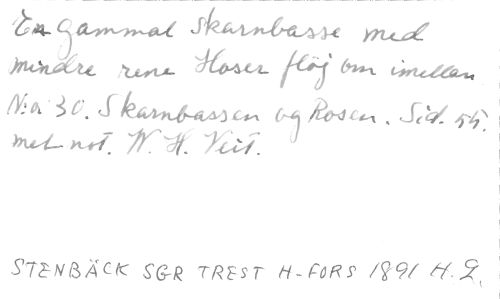 En gammal Skarnbasse med
mindre rene Hoser fløj om imellan
N:o 30. Skarnbassen og Rosen. Sid. 55.
met not. W. H. Veit.
STENBÄCK SGR TREST H-FORS 1891 H. L.